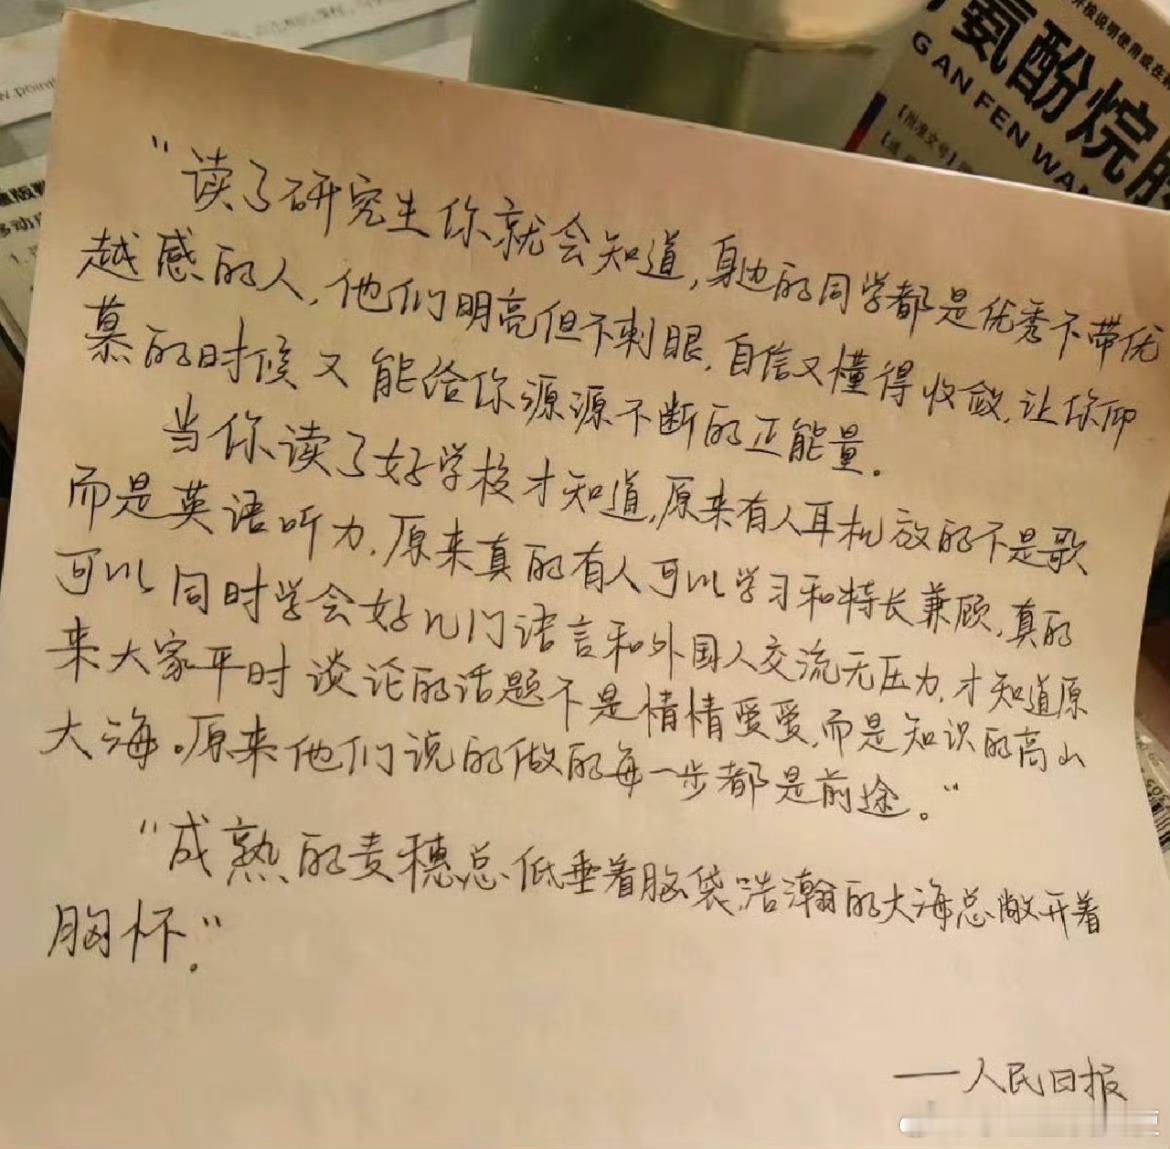 氨酚烷胶
GAN FEN WAN
【批准文号】
"读了研究生你就会知道,身边的同学都是优秀不带优
越感的人,他们明亮但不刺眼,自信又懂得收敛,让你仰
慕的时候又能给你源源不断的正能量。
当你读了好学校才知道,原来有人耳机放的不是歌
而是英语听力,原来真的有人可以学习和特长兼顾,真的
可以同时学会好几门语言和外国人交流无压力,才知道原
来大家平时谈论的话题不是情情爱爱,而是知识的高山
大海。原来他们说的做的每一步都是前途。"
"成熟的麦穗总低垂着脑袋,浩瀚的大海总敞开着
胸怀."
——人民日报